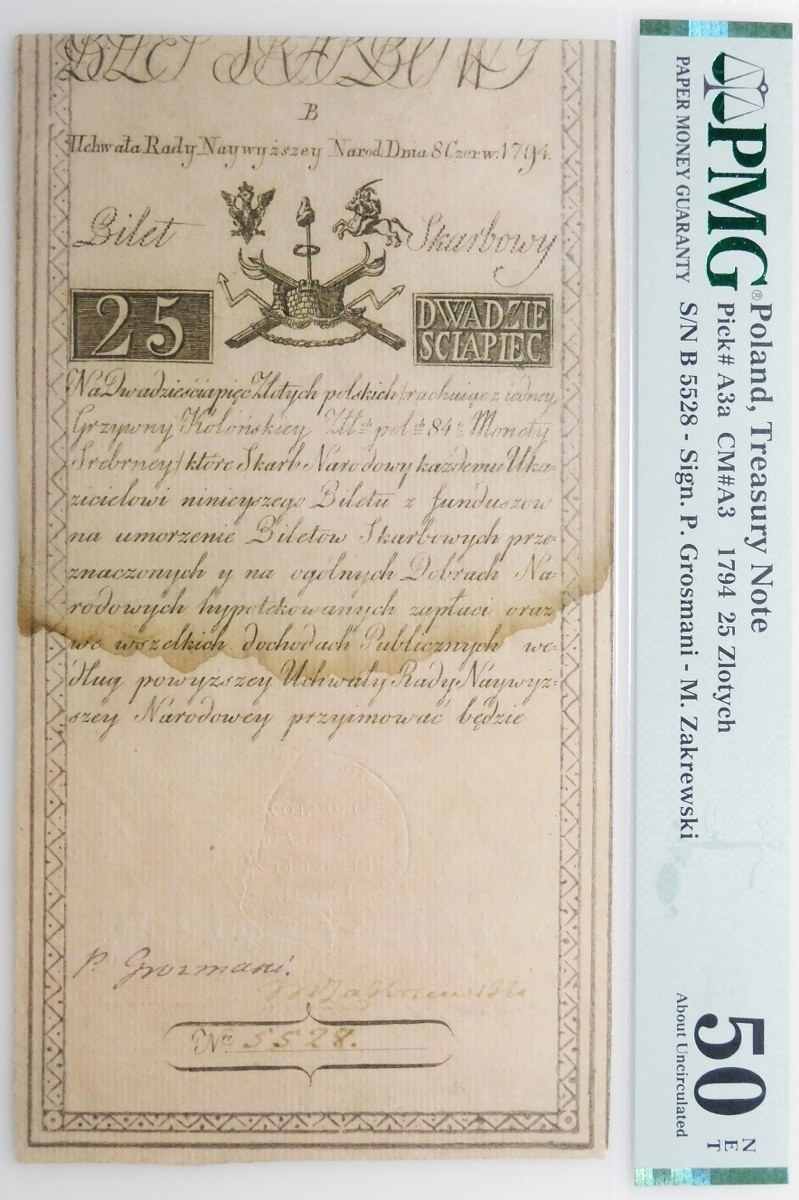 BILET SKARBOWY
B
Uchwała Rady Naywyższey Narod. Dnia 8 Czerw. 1794.
Bilet Skarbowy
25 DWADZIE
SCIAPIEC
Na Dwadzieściapięć Złotych polskich / rachuiąc z iedney
Grzywny Kolońskiey Złt. pol. 84. Monety
Srebrney / które Skarb Narodowy każdemu Uka=
zicielowi ninieyszego Biletu z funduszow
na umorzenie Biletow Skarbowych prze=
znaczonych y na ogólnych Dobrach Na=
rodowych hypotekowanych zapłaci oraz
we wszelkich dochodach Publicznych we=
dług powyzszey Uchwały Rady Naywyż=
szey Narodowey przyimować będzie
WOLNOSC
P. Grozmani.
M Zakrzewski
No 5528.
PMG®
PAPER MONEY GUARANTY
Poland, Treasury Note
Pick# A3a CM#A3 1794 25 Zlotych
S/N B 5528 - Sign. P. Grosmani - M. Zakrewski
50
About Uncirculated
TEN